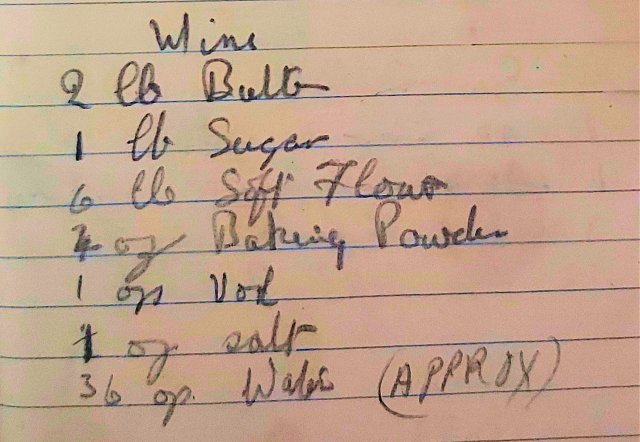 Wine
2 lb Butter
1 lb Sugar
6 lb Soft Flour
oz Baking Powder
1 oz
1 oz salt
36 oz Water (APPROX)